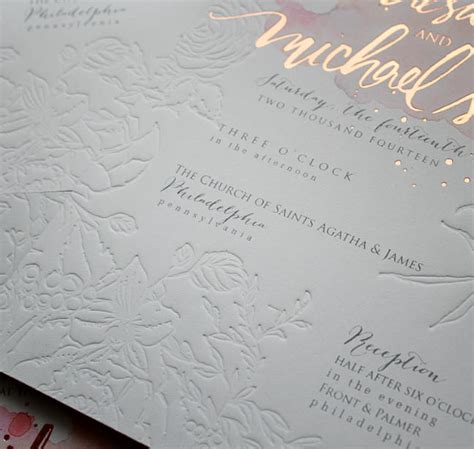 Philadelphia
pennsylvania
AND
michael
Saturday, the fourteenth
TWO THOUSAND FOURTEEN
THREE O'CLOCK
in the afternoon
THE CHURCH OF SAINTS AGATHA & JAMES
Philadelphia
pennsylvania
Reception
HALF AFTER SIX O'CLOCK
in the evening
FRONT & PALMER
philadelphia